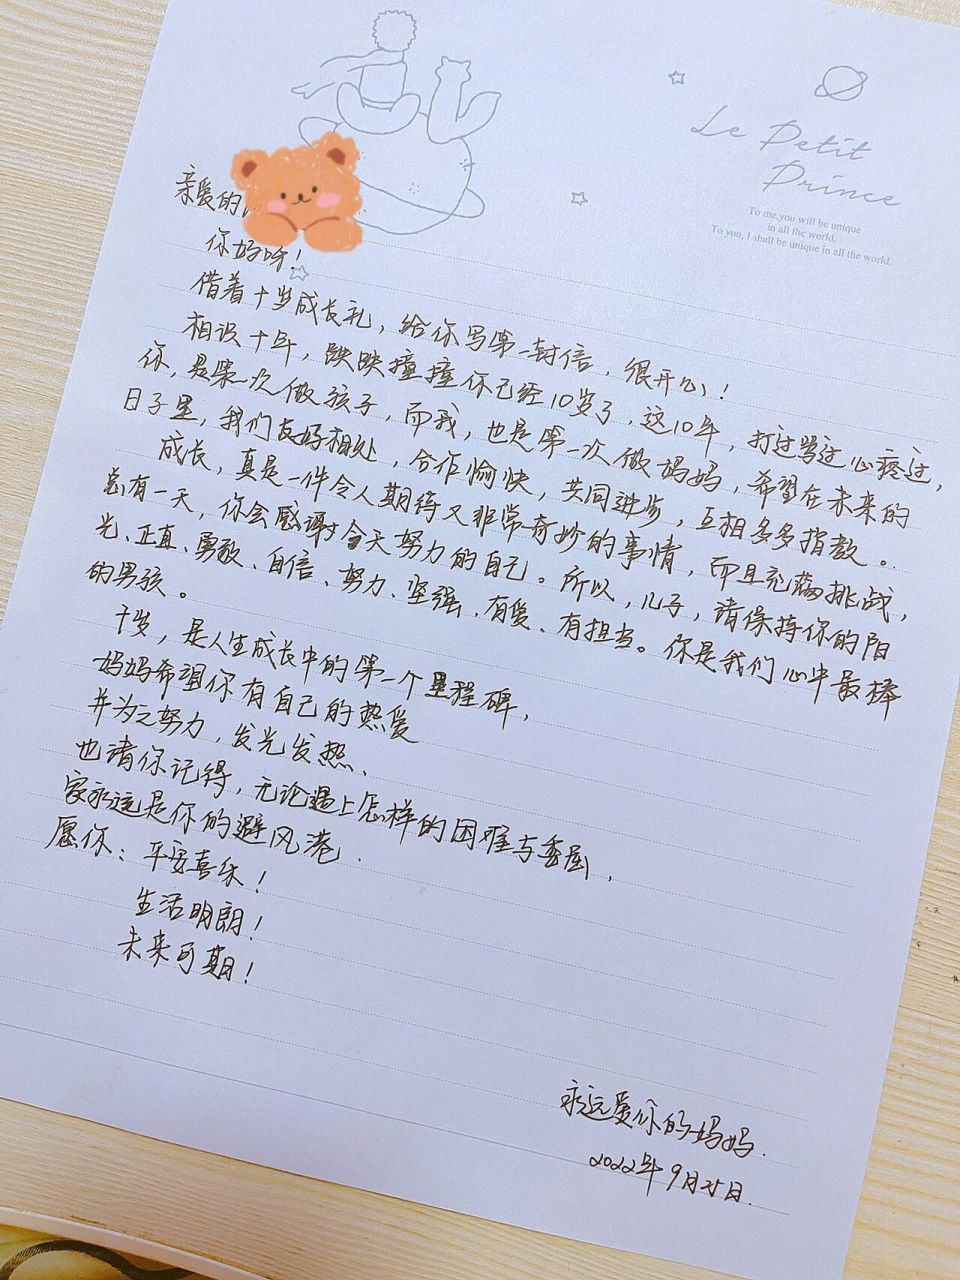 Le Petit
Prince
To me, you will be unique
in all the world.
To you, I shall be unique in all the world.
亲爱的
你好呀！
借着十岁成长礼，给你写第一封信，很开心！
相识十年，跌跌撞撞你已经10岁了，这10年，打过骂过心疼过，
你，是第一次做孩子，而我，也是第一次做妈妈，希望在未来的
日子里，我们友好相处，合作愉快，共同进步，互相多多指教。
成长，真是一件令人期待又非常奇妙的事情，而且充满挑战，
总有一天，你会感谢今天努力的自己。所以，儿子，请保持你的阳
光、正直、勇敢、自信、努力、坚强、有爱、有担当。你是我们心中最棒
的男孩。
十岁，是人生成长中的第一个里程碑，
妈妈希望你有自己的热爱
并为之努力，发光发热、
也请你记得，无论遇上怎样的困难与委屈，
家永远是你的避风港．
愿你：平安喜乐！
生活明朗！
未来可期！
永远爱你的妈妈．
2022年9月25日．